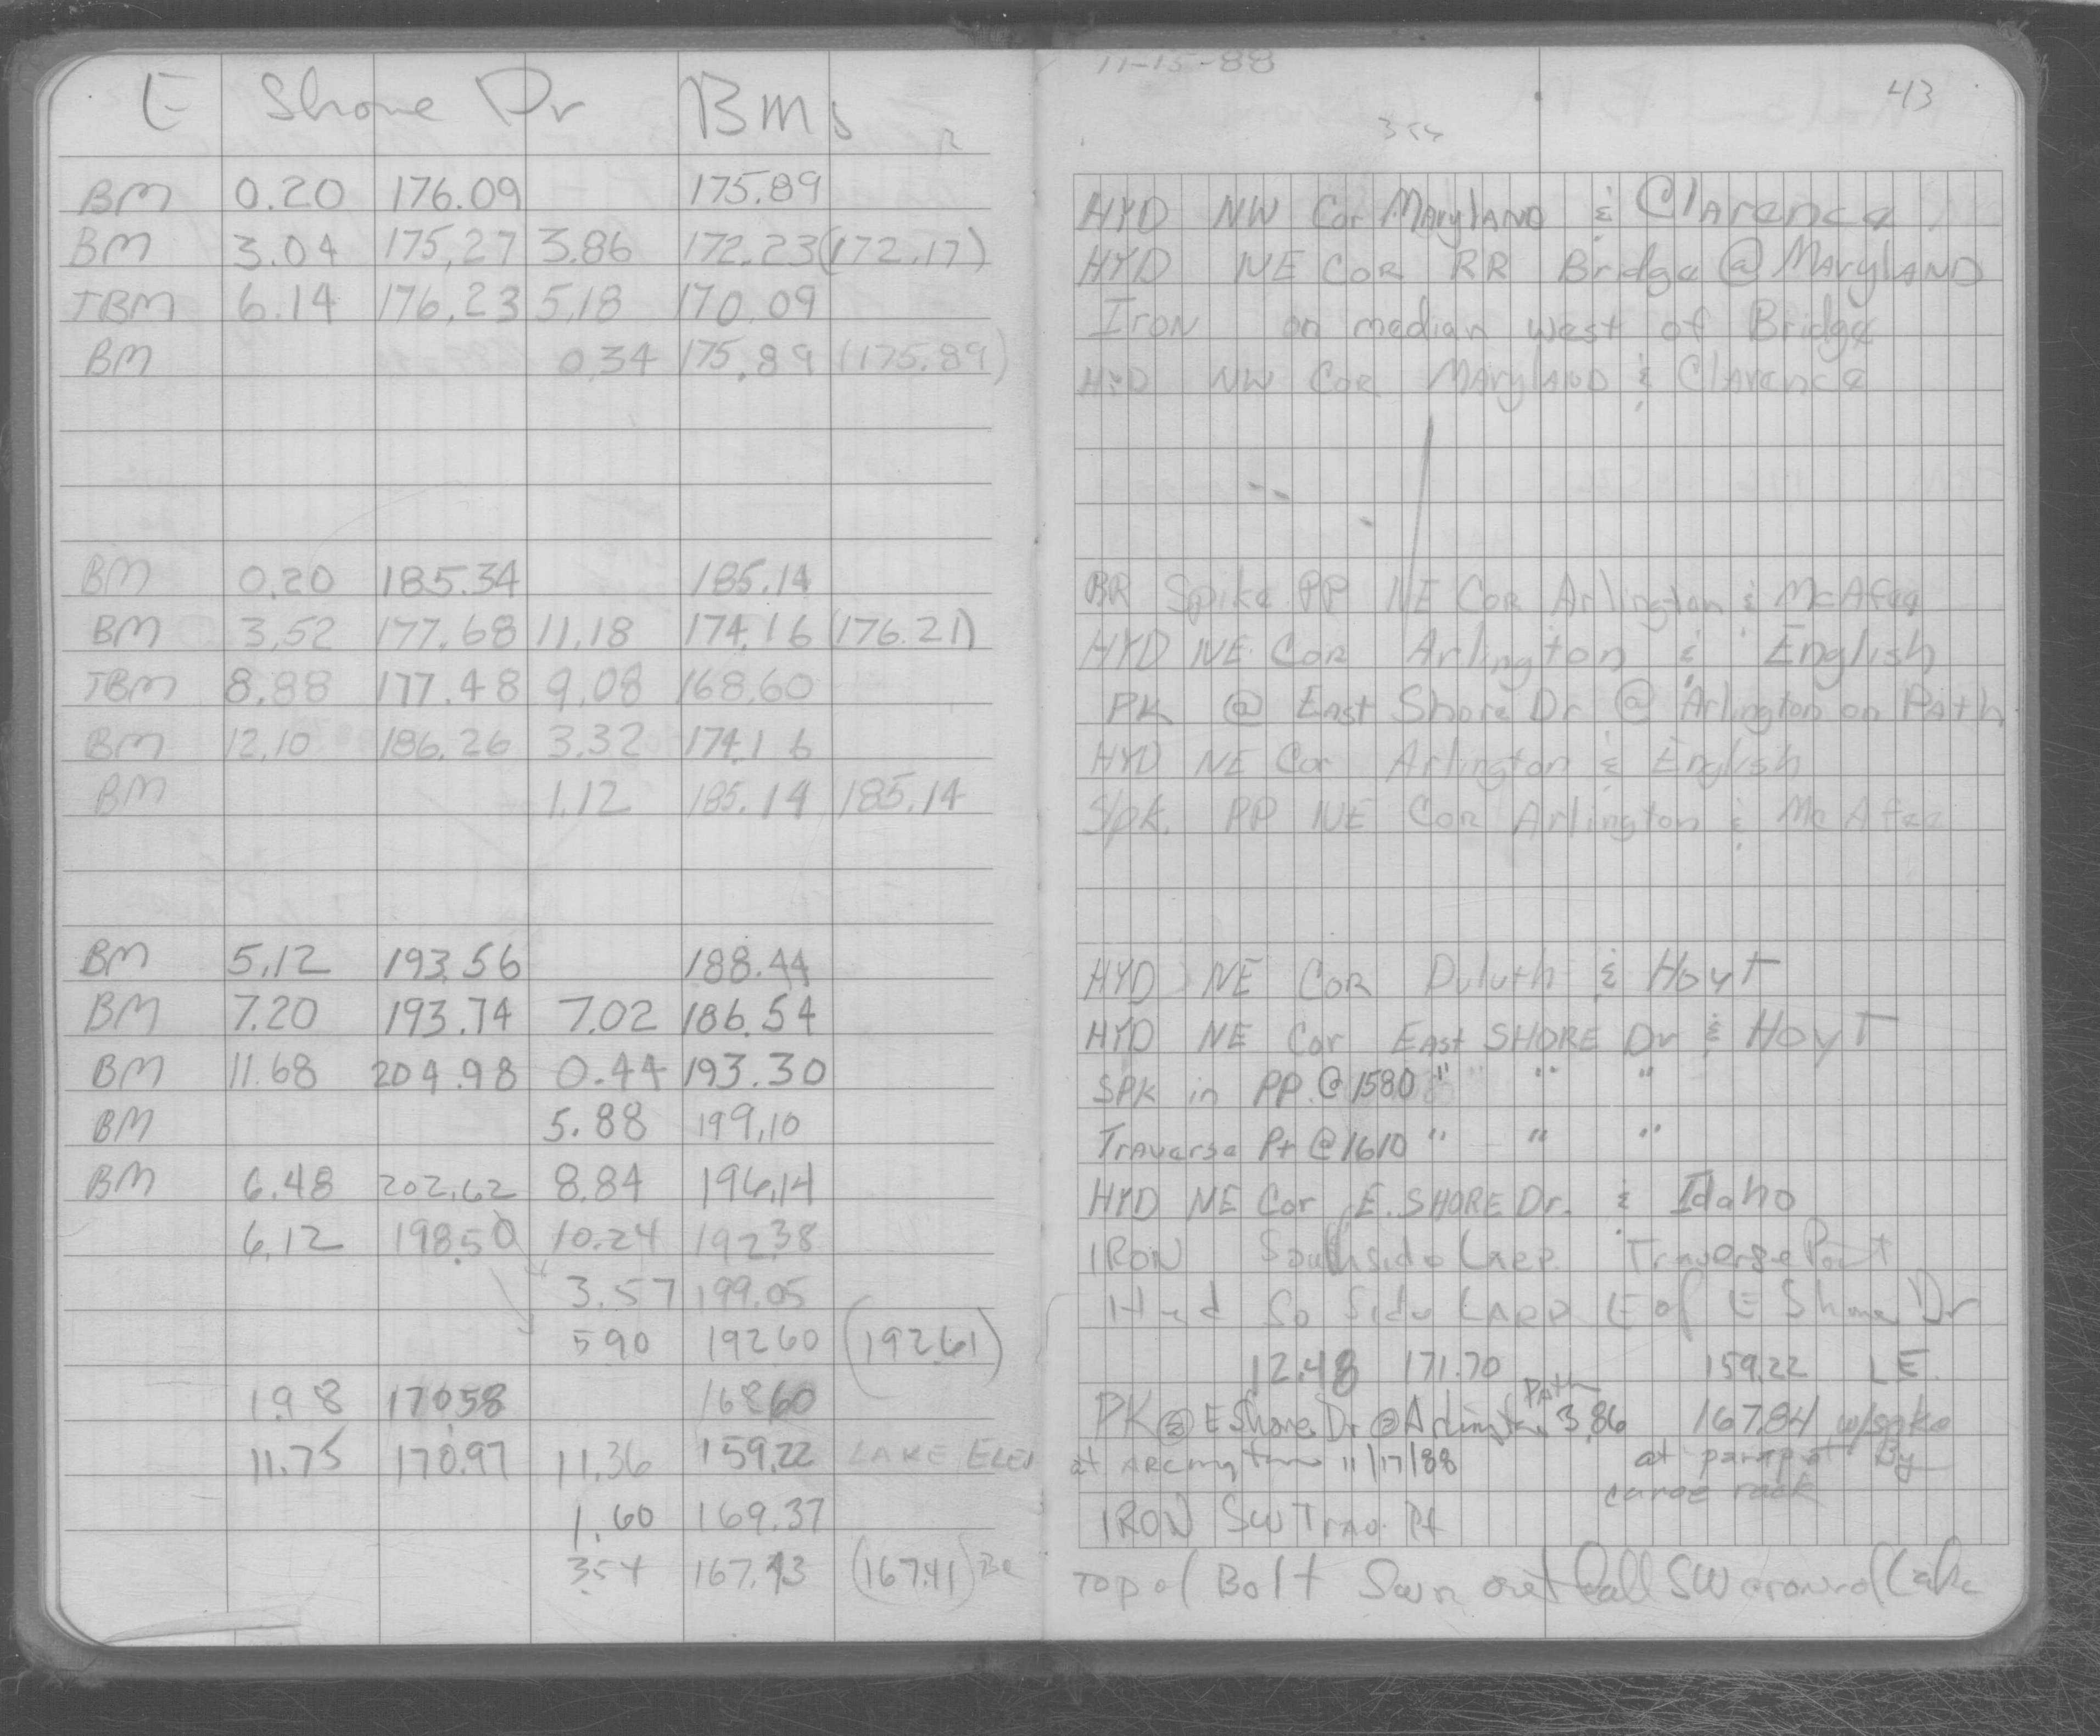 E Shore Dr BMs
BM 0.20 176.09 175.89
BM 3.04 175.27 3.86 172.23 (172.17)
TBM 6.14 176.23 5.18 170.09
BM 0.34 175.89 (175.89)
BM 0.20 185.34 185.14
BM 3.52 177.68 11.18 174.16 (176.21)
TBM 8.88 177.48 9.08 168.60
BM 12.10 186.26 3.32 174.16
BM 1.12 185.14 185.14
BM 5.12 193.56 188.44
BM 7.20 193.74 7.02 186.54
BM 11.68 204.98 0.44 193.30
BM 5.88 199.10
BM 6.48 202.62 8.84 196.14
6.12 198.50 10.24 192.38
3.57 199.05
590 19260 (192.61)
1.98 170.58 168.60
11.75 170.97 11.36 159.22 LAKE ELEV
1.60 169.37
3.54 167.43 (167.41)
11-15-88
43
354
HYD NW Cor Maryland & Clarence
HYD NE Cor RR Bridge @ Maryland
Iron on median west of Bridge
HYD NW Cor Maryland & Clarence
BR Spike PP NE Cor Arlington & McAfee
HYD NE Cor Arlington & English
PK @ East Shore Dr @ Arlington on Path
HYD NE Cor Arlington & English
Spk. PP NE Cor Arlington & McAfee
HYD NE Cor Duluth & Hoyt
HYD NE Cor East SHORE Dr & Hoyt
SPK in PP @ 1580 " " "
Traverse Pt @ 1610 " " "
HYD NE Cor E. SHORE Dr. & Idaho
IRON Southside Larp. Traverse Point
Hyd So Side LARP E of E Shore Dr
12.48 171.70 159.22 LE.
PK @ E Shore Dr @ Arlington Path 3.86 167.84 w/spike
at Arlington 11/17/88 at parapet By
IRON SW Trav. Pt
Top of Bolt Swr outfall SW around Lake